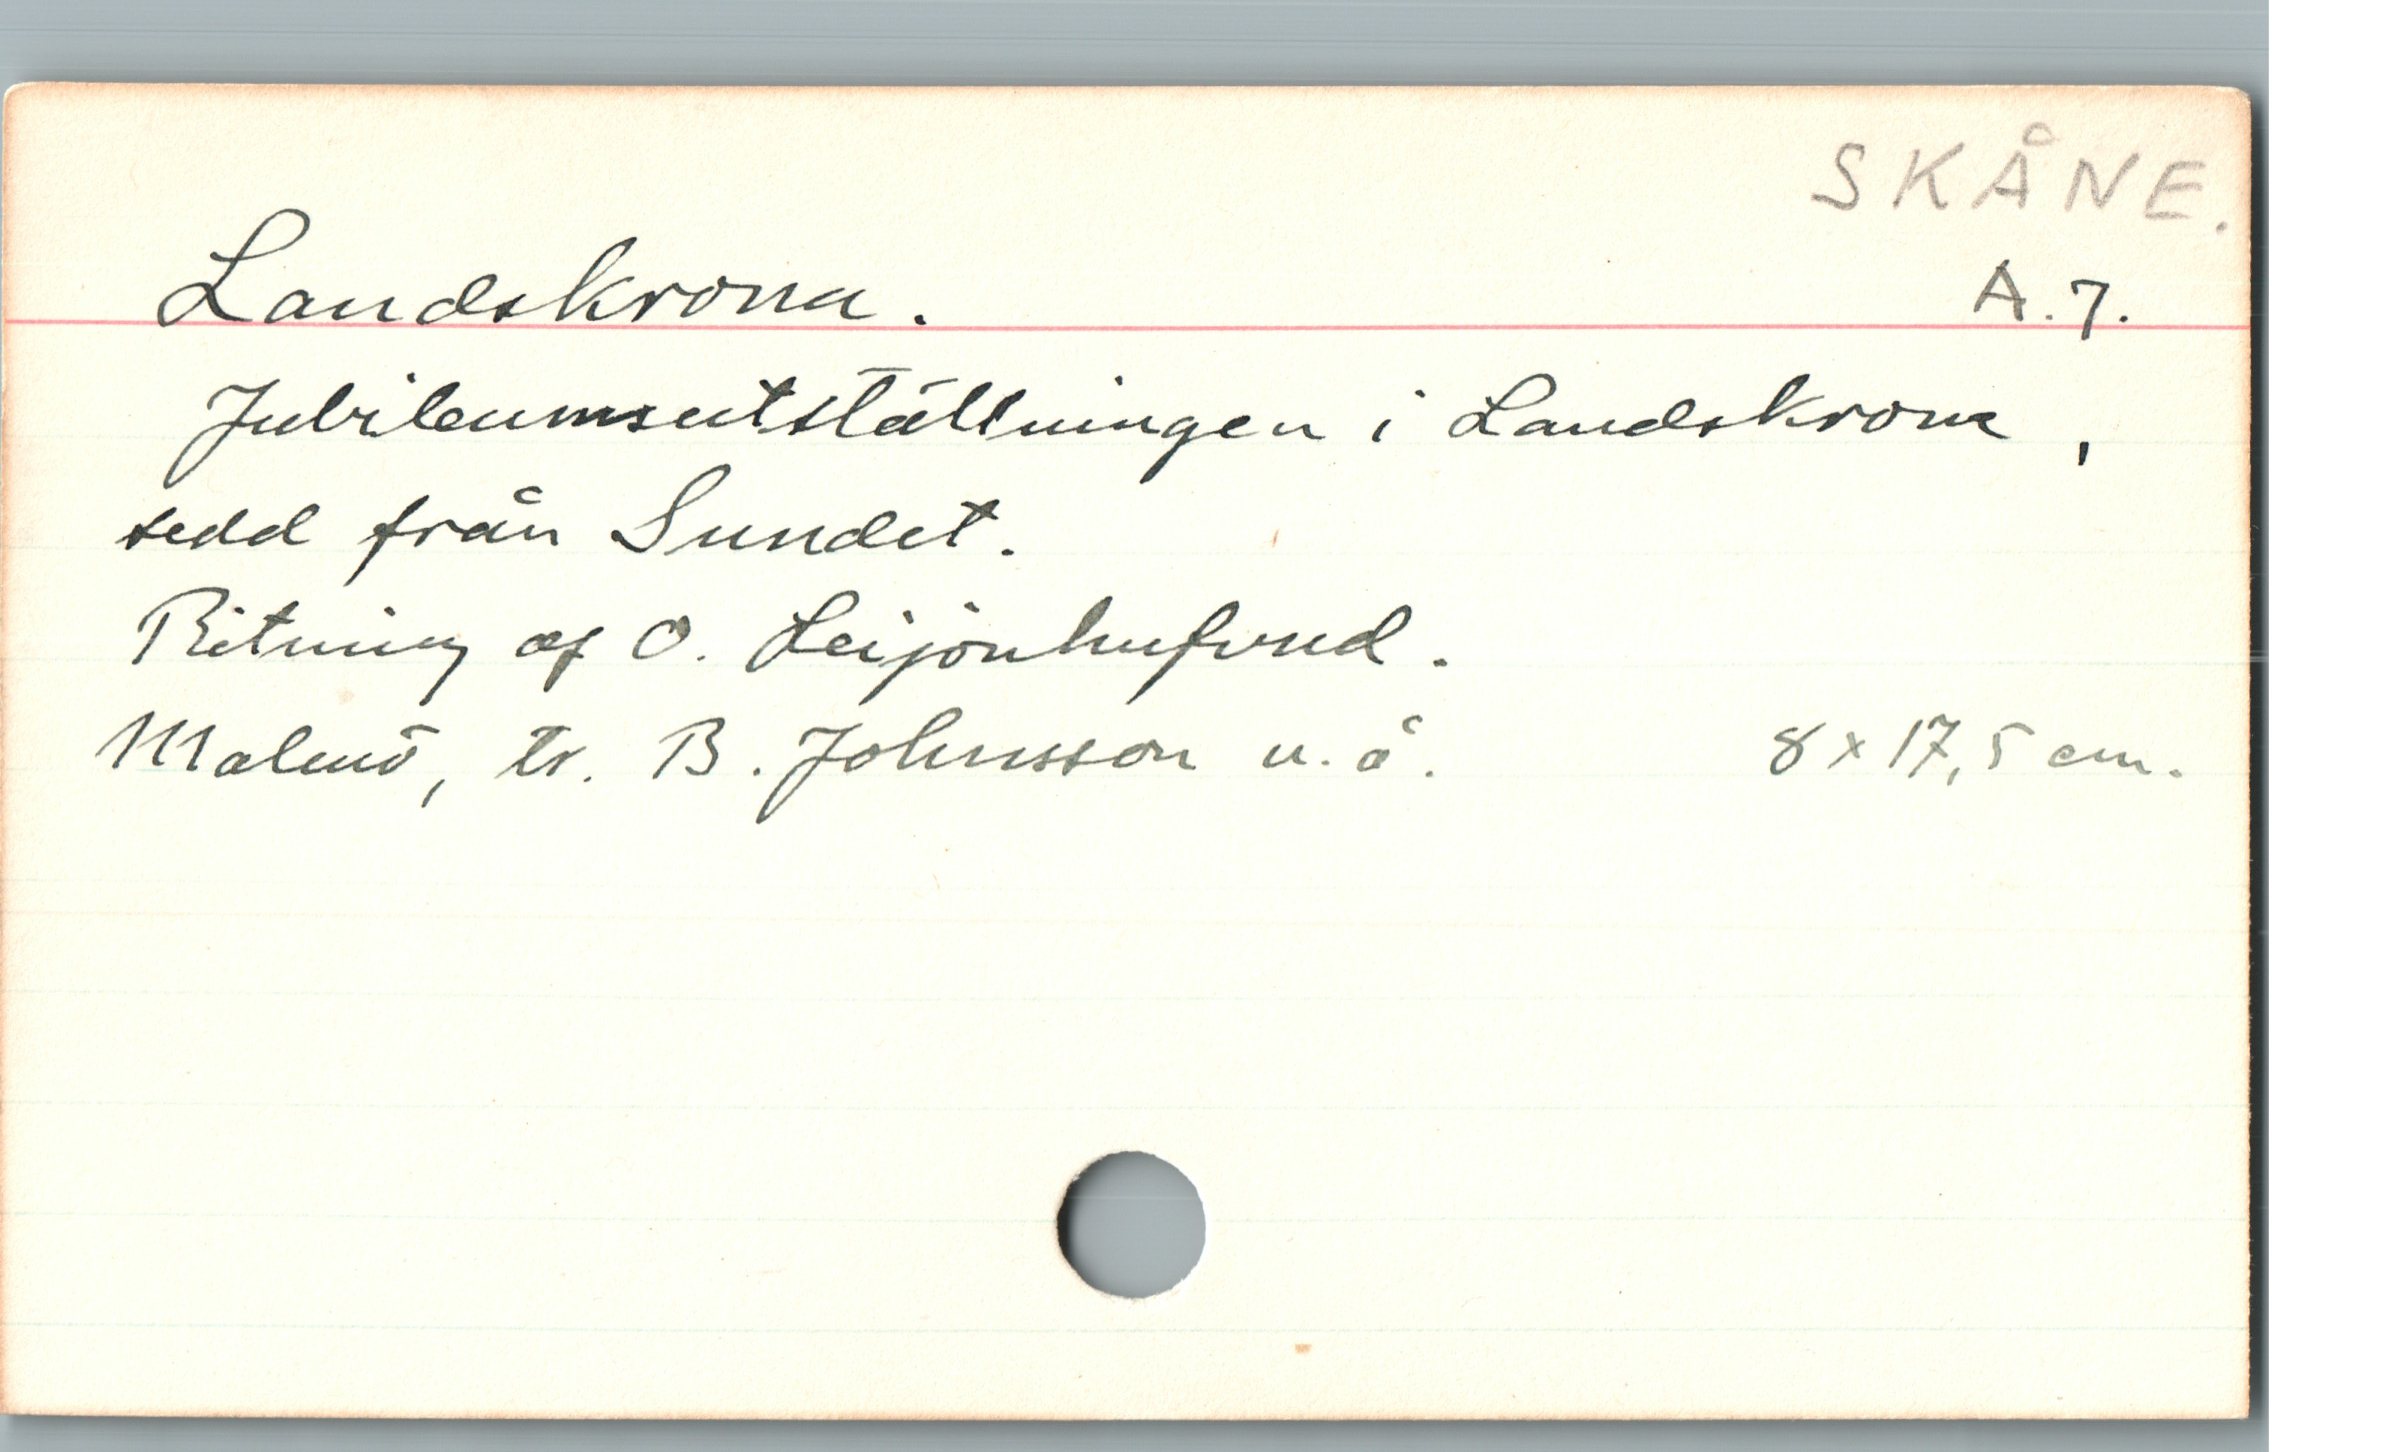 SKÅNE.
Landskrona. A. 7.
Jubileumsutställningen i Landskrona,
sedd från Sundet.
Ritning af O. Leijonhufvud.
Malmö, tr. B. Johnsson u. å. 8 x 17,5 cm.